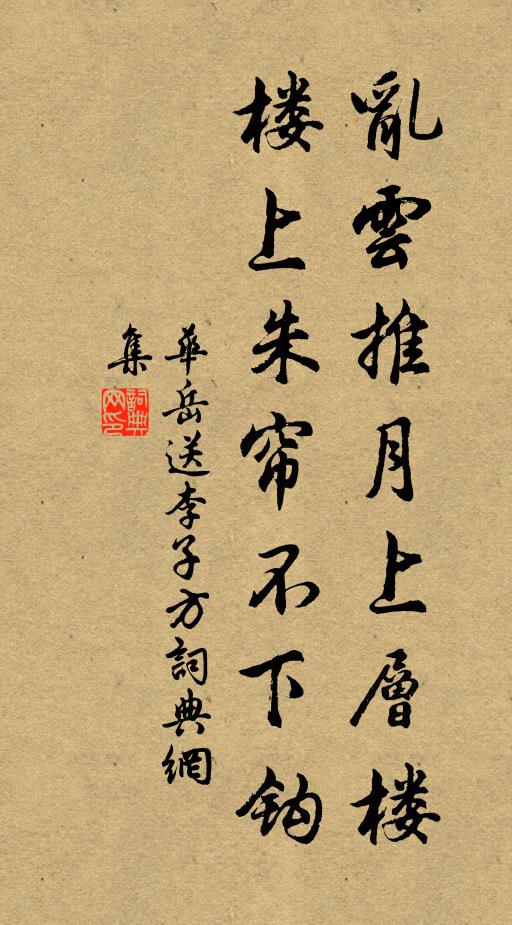 亂雲推月上層楼
楼上朱帘不下鈎
華岳送李子方詞典網
集
詞典網印